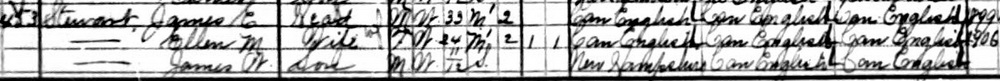 453 Stewart James E. Head M W 33 M1 2 Can English Can English Can English
— Ellen M. Wife F W 24 M1 2 1 1 Can English Can English Can English 1906
— James W. Son M W 11/12 S New Hampshire Can English Can English